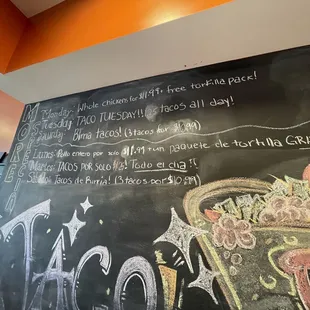 Monday: Whole chickens for $11.99 + free tortilla pack!
Tuesday: TACO TUESDAY!! tacos all day!
Saturday: Birria tacos! (3 tacos por $10.99)
Lunes: Pollo entero por solo $11.99 + un paquete de tortilla GR
Martes: TACOS POR SOLO Todo el dia!!
Tacos de Birria! (3 tacos por $10.99)
Taco